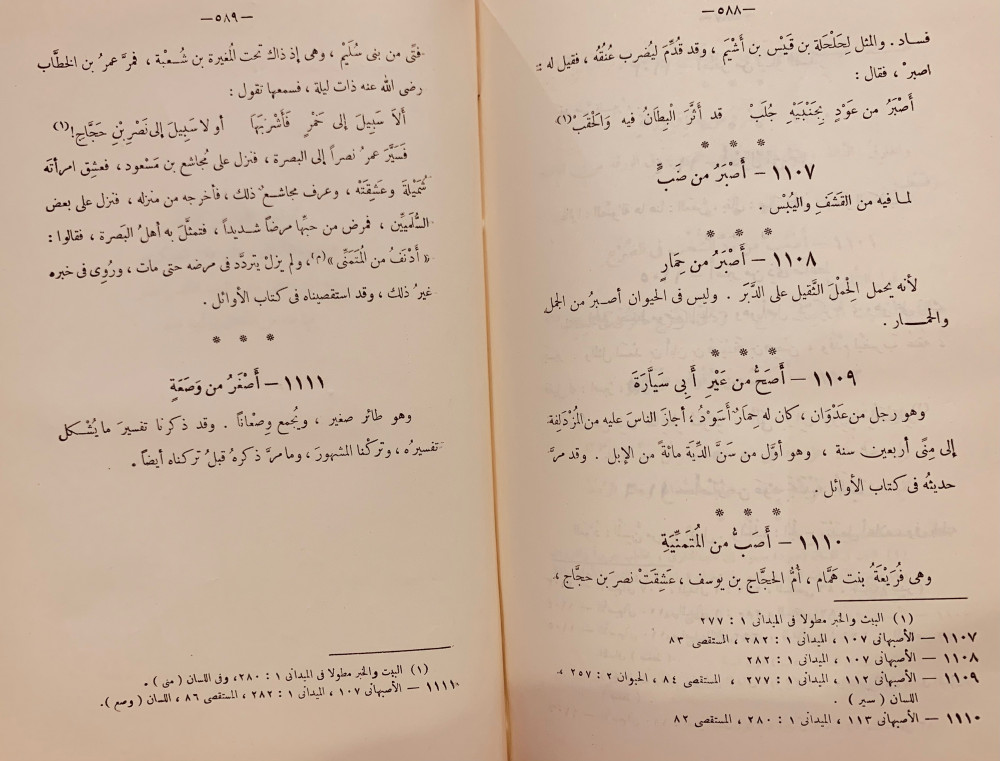 —٥٨٨—
فساد . والمثل لِحَلْحَلة بن قَيْس بن أَشْيَم ، وقد قُدِّمَ ليُضرب عُنُقُه ، فقيل له :
اصبرْ ، فقال :
أَصْبَرُ من عَوْدٍ بِجَنْبَيْهِ جُلَبْ قد أَثَّرَ البِطَانُ فيه وَالحَقَبْ(١)
* * *
١١٠٧ – أَصْبَرُ من ضَبٍّ
لما فيه من القَشَفِ واليُبْسِ .
* * *
١١٠٨ – أَصْبَرُ من حِمَارٍ
لأنه يحمل الحِمْلَ الثَّقيل على الدَّبَر . وليس فى الحيوان أصبرُ من الجمل
والحمـار .
* * *
١١٠٩ – أَصَحُّ من عَيْرِ أَبِى سَيَّارَةَ
وهو رجل من عَدْوَان ، كان له حِمَارٌ أَسْوَدُ ، أجازَ الناسَ عليه من المُزْدَلِفة
إلى مِنًى أربعين سنة ، وهو أوَّل من سَنَّ الدِّيَة مائةً من الإبل . وقد مرَّ
حديثُه فى كتاب الأوائل .
* * *
١١١٠ – أَصَبُّ من المُتَمَنِّيَةِ
وهى فُرَيْعَةُ بنت هَمَّام ، أمُّ الحجَّاج بن يوسف ، عَشِقَتْ نصرَ بن حجَّاج ،
(١) البيت والخبر مطولا فى الميدانى ١ : ٢٧٧
١١٠٧ – الأصبهانى ١٠٧ ، الميدانى ١ : ٢٨٢ ، المستقصى ٨٣
١١٠٨ – الأصبهانى ١٠٧ ، الميدانى ١ : ٢٨٢
١١٠٩ – الأصبهانى ١١٢ ، الميدانى ١ : ٢٧٧ ، المستقصى ٨٤ ، الحيوان ٢ : ٢٥٧ ،
اللسان ( سير ) .
١١١٠ – الأصبهانى ١١٣ ، الميدانى ١ : ٢٨٠ ، المستقصى ٨٢
—٥٨٩—
فتًى من بنى سُلَيمْ ، وهى إذ ذاك تحت المُغيرة بن شُـعْبة ، فمرَّ عمرُ بن الخطَّاب
رضى الله عنه ذات ليلة ، فسمعها تقول :
أَلاَ سَبِيلَ إلى خَمْرٍ فَأَشْرَبَهَا أو لا سَبِيلَ إلى نَصْرِ بْنِ حَجَّاجِ!(١)
فَسَيَّرَ عمرُ نصراً إلى البصرة ، فنزل على مُجاشع بن مَسْعود ، فعشِق امرأتَه
شُمَيْلَةَ وعَشِقَتْه ، وعرف مجاشعٌ ذلك ، فأخرجه من منزله ، فنزل على بعض
السُّلَمِيِّين ، فمرض من حبِّها مرضاً شـديداً ، فتمثَّلَ به أهلُ البَصرة ، فقالوا :
« أَدْنَفُ من المُتَمَنَّى »(م)، ولم يزلْ يتردَّد فى مرضه حتى مات ، ورُوِى فى خبره
غيرُ ذلك ، وقد استقصيناه فى كتاب الأوائل .
* * *
١١١١ – أَصْغَرُ من وَصَعَةٍ
وهو طائر صغير ، ويُجمع وِصْعاناً . وقد ذكرنا تفسيرَ ما يُشْـكل
تفسيرُه ، وتركْنا المشهورَ ، وما مرَّ ذكرهُ قبلُ تركناه أيضاً .
(١) البيت والخبر مطولا فى الميدانى ١ : ٢٨٠، وفى اللسان ( منى ) .
١١١١ – الأصبهانى ١٠٧ ، الميدانى ١ : ٢٨٢ ، المستقصى ٨٦ ، اللسان ( وصع ) .